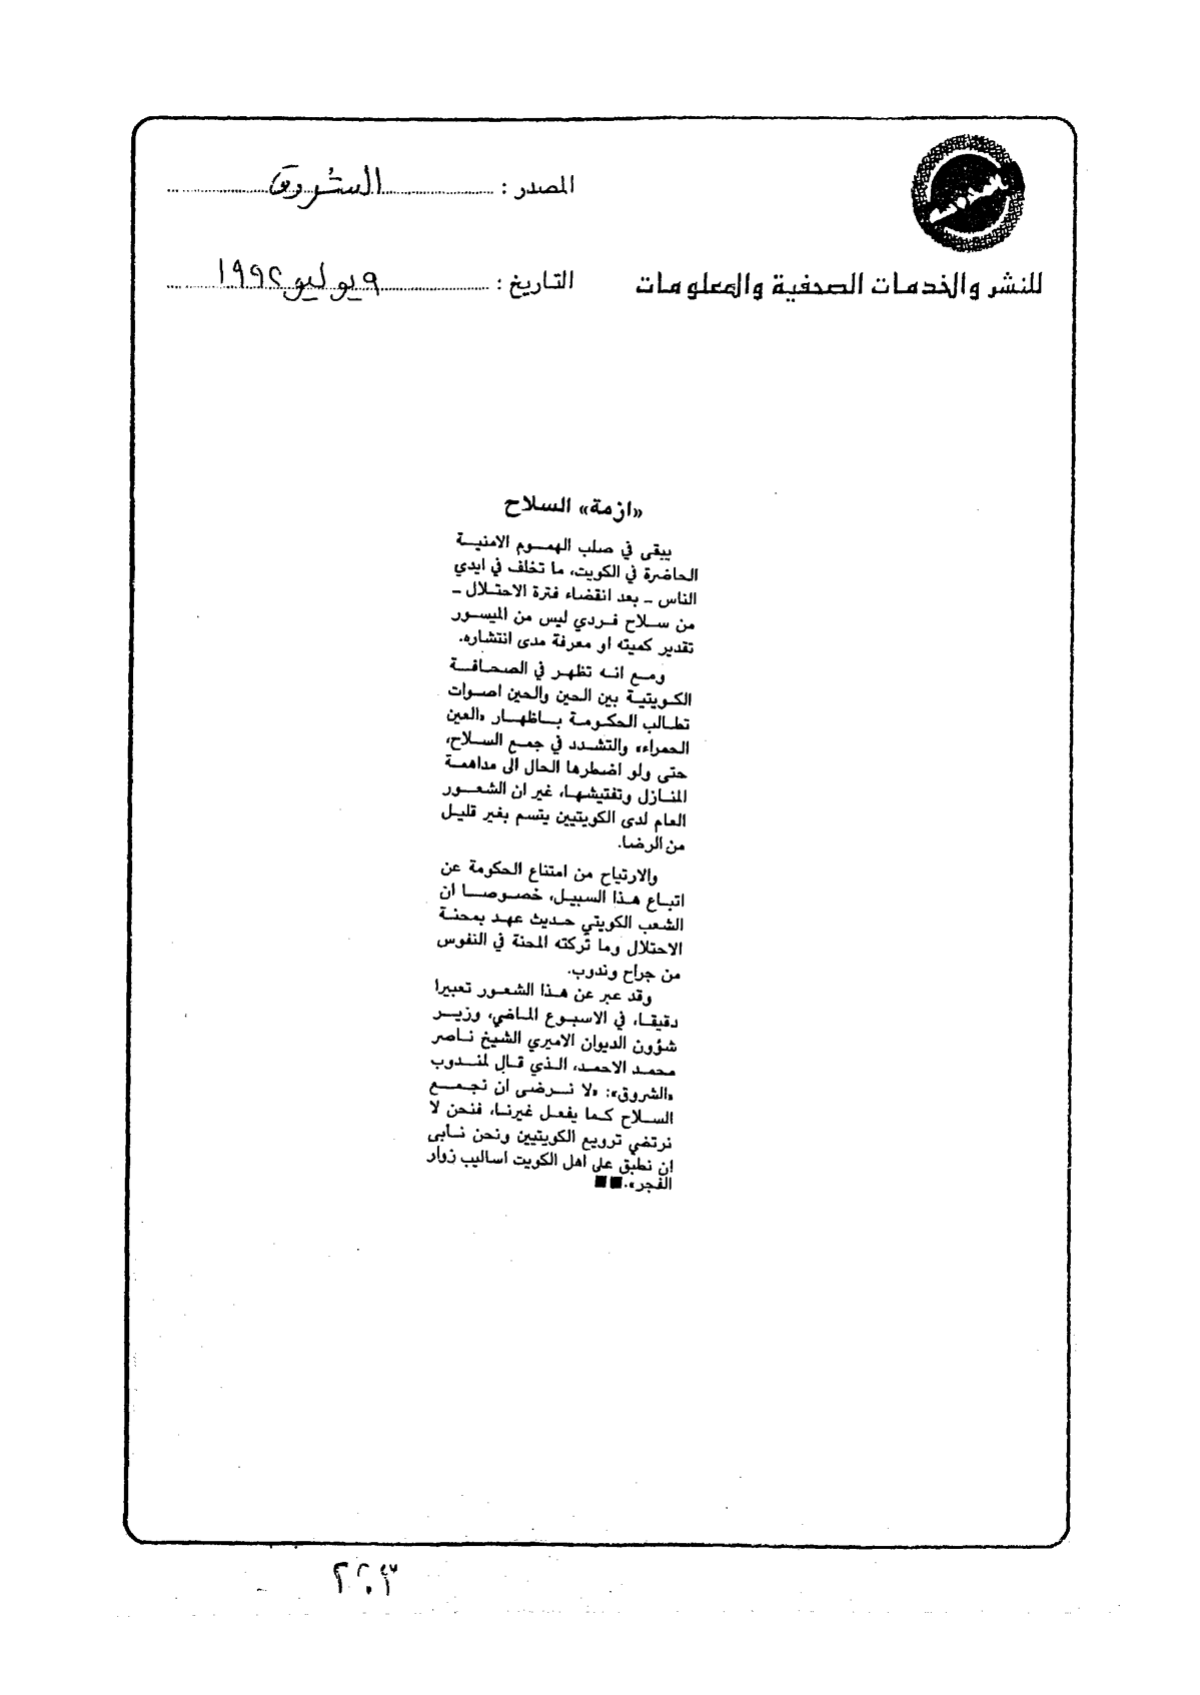 المصدر : الشروق
للنشر والخدمات الصحفية والمعلومات
التاريخ : ٩ يوليو ١٩٩٢
«ازمة» السلاح
يبقى في صلب الهموم الامنية
الحاضرة في الكويت، ما تخلف في ايدي
الناس ـ بعد انقضاء فترة الاحتلال ـ
من سلاح فردي ليس من الميسور
تقدير كميته او معرفة مدى انتشاره.
ومع انه تظهر في الصحافة
الكويتية بين الحين والحين اصوات
تطالب الحكومة باظهار «العين
الحمراء» والتشدد في جمع السلاح،
حتى ولو اضطرها الحال الى مداهمة
المنازل وتفتيشها، غير ان الشعور
العام لدى الكويتيين يتسم بغير قليل
من الرضا.
والارتياح من امتناع الحكومة عن
اتباع هذا السبيل، خصوصا ان
الشعب الكويتي حديث عهد بمحنة
الاحتلال وما تركته المحنة في النفوس
من جراح وندوب.
وقد عبر عن هذا الشعور تعبيرا
دقيقا، في الاسبوع الماضي، وزير
شؤون الديوان الاميري الشيخ ناصر
محمد الاحمد، الذي قال لمندوب
«الشروق»: «لا نرضى ان نجمع
السلاح كما يفعل غيرنا، فنحن لا
نرتضي ترويع الكويتيين ونحن نأبى
ان نطبق على اهل الكويت اساليب زوار
الفجر».■■